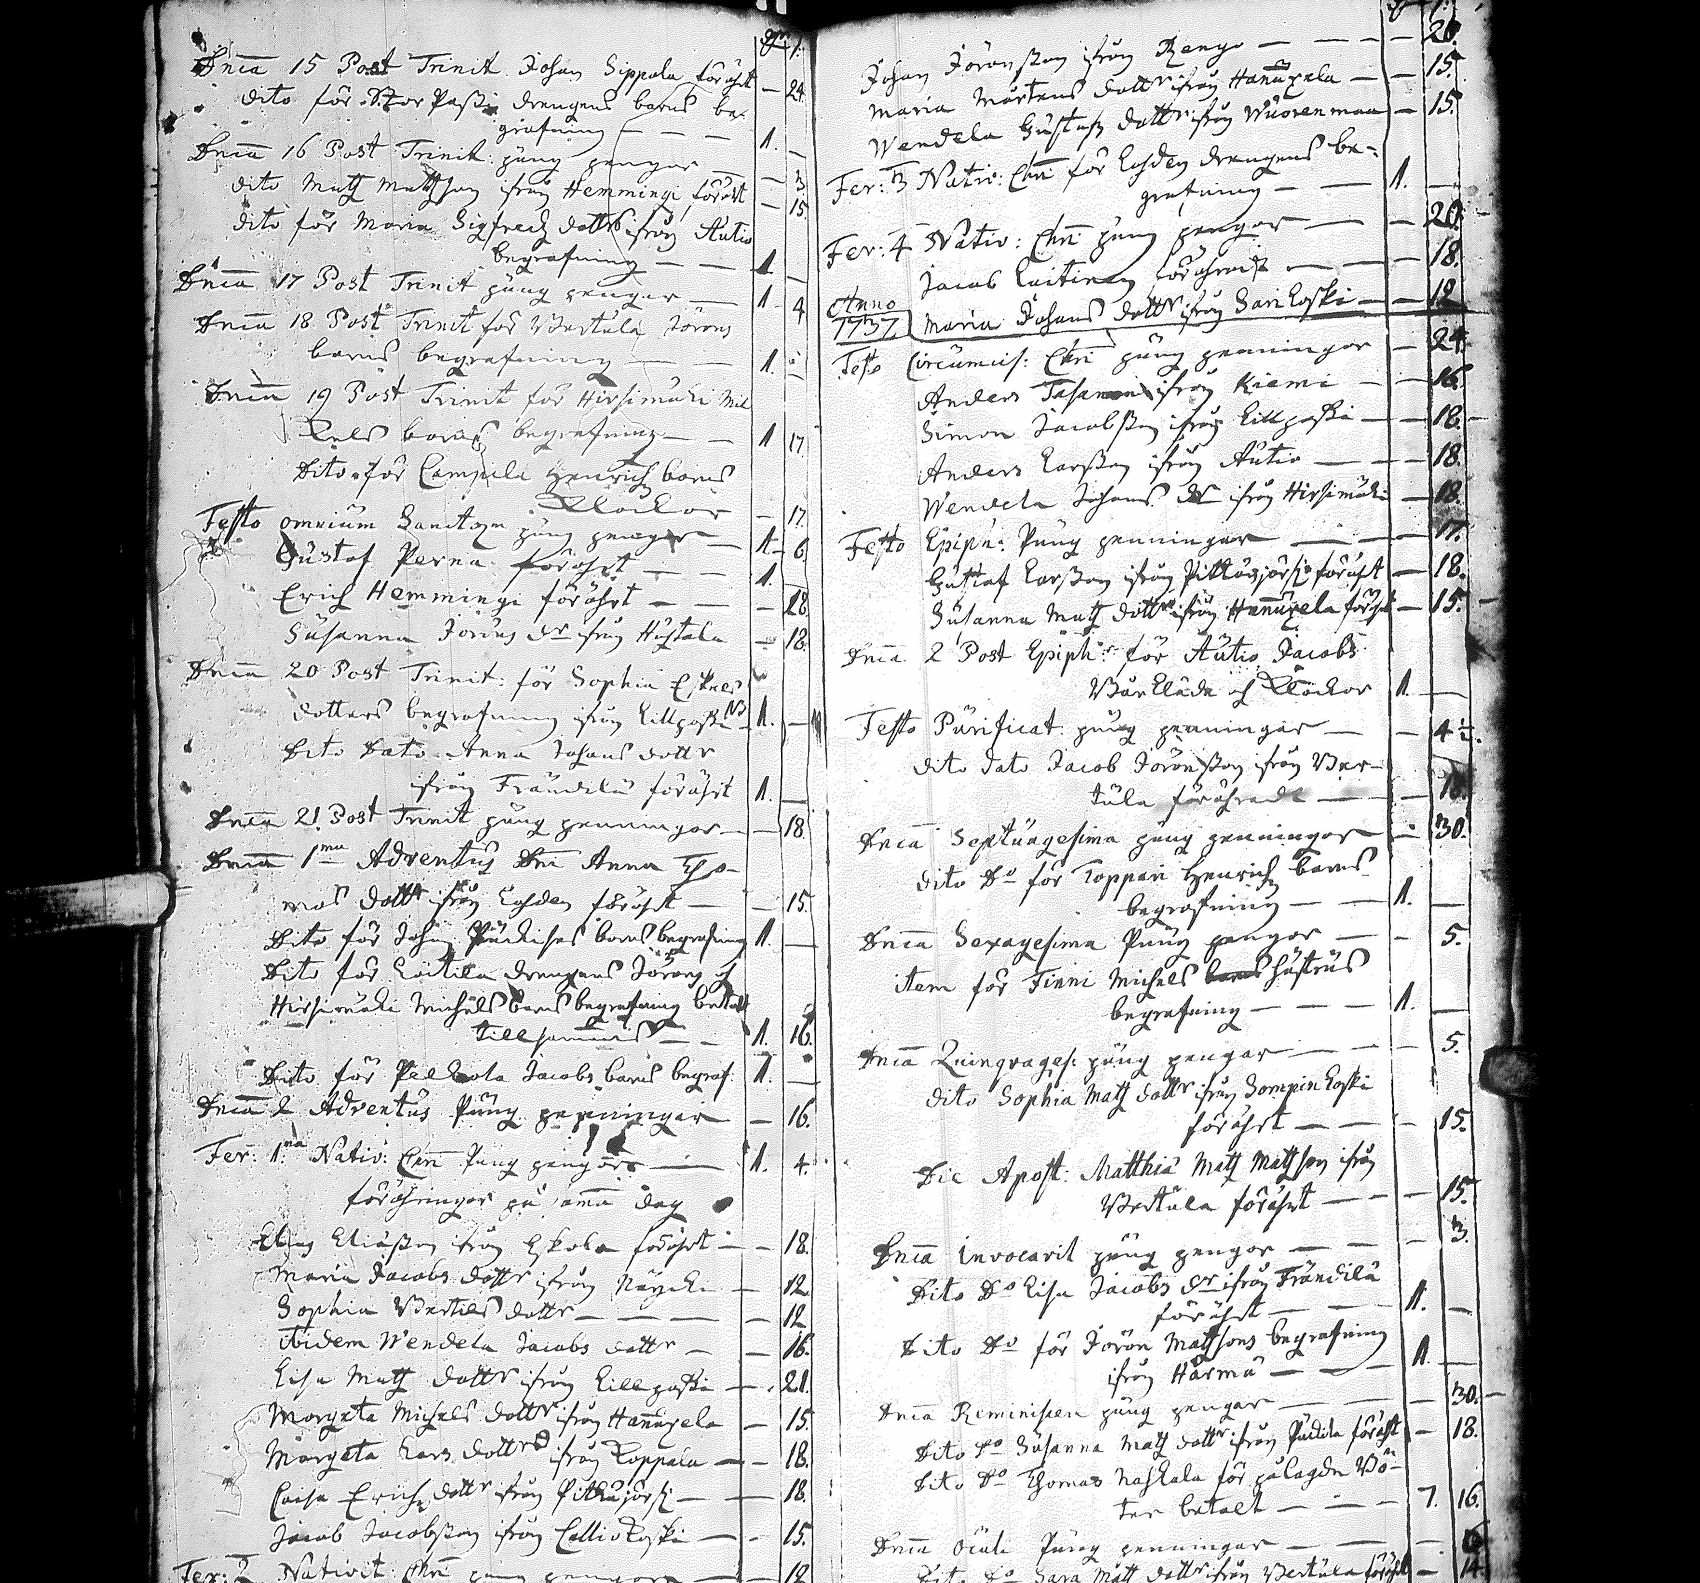 Dnica 15 Post Trinit. Johan Sippola förährt — 24.
dito för Stor Passi drengens barns be-
grafning — — — 1. —
Dnica 16 Post Trinit. pung pengar — 3.
dito Matz Mattsson ifrån Hemmingi förährt — 15.
dito för Maria Sigfredz dotters ifrån Autio
begrafning — — 1. —
Dnica 17 Post Trinit pung pengar — 1. 4
Dnica 18 Post Trinit för Vertula Jörans
barns begrafning — — 1. —
Dnica 19 Post Trinit för Hirsimäki Mic
kels barns begrafning — — 1. 17.
Dito för Henrich barns
Klockor — 17.
Festo omnium Sanctorum pung pengar — 1. 6.
Gustaf Perna förährt — — 1. —
Erich Hemmingi förährt — — 28.
Susanna Jörans dr ifrån — 18.
Dnica 20 Post Trinit: för Sophia Eskels
dotters begrafning ifrån Killposki 1. —
Dito Dato Anna Johans dottr
ifrån Frändilä förährt 1. —
Dnica 21. Post Trinit pung penningar — — 18.
Dnica 1ma Adventus Dni Anna Tho-
mas dottr ifrån förährt — — 15.
Dito för Johan barns begrafning 1. —
Dito för Laitila drengens Jörans och
Hirsimäki Michels barns begrafning betalt
tillsammans — — 1. 16.
Dito för Pelkola Jacobs barns begraf. 1. —
Dnica 2 Adventus Pung penningar — 16.
Fer: 1ma Nativ: Chri Pung pengar — 1. 4.
förähringar på samma dag
Elias Eliasson ifrån Eskola förährt — — 18.
Maria Jacobs dottr ifrån — 12
Sophia Bertils dottr — — — — 12
ibidem Wendela Jacobs dottr — — 16.
Lisa Matz dottr ifrån Killposki — 21.
Margeta Michels dottr ifrån Hannuxela — 15.
Margeta Lars dottr ifrån Koppala — — 18.
Caisa Erichs dottr ifrån Pitkäjärfi — — 18.
Jacob Jacobsson ifrån Calliokoski — - 15.
Fer: 2. Nativit: Chri pung pengar — — 18
Johan Jöransson ifrån — — — — 20.
Maria Mårtens dottr ifrån Hannuxela — — 15.
Wendela Gustafs dottr ifrån Wuorenmaa — 15.
Fer: 3 Nativ: Chri för drengens be-
grafning — — 1. —
Fer: 4 Nativ: Chri pung pengar — — 20.
Jacob Laitinen förährade — — — 18.
Maria Johans dottr ifrån Sarikoski — — 18
Anno
1737.
Festo Circumcis: Chri pung penningar — 24.
Anders ifrån Kiemi — — 16.
Simon Jacobsson ifrån Killposki — — 18.
Anders Larsson ifrån Autio — — — 18.
Wendela Johans dr ifrån Hirsimäki — 18.
Festo Epiph: Pung penningar — — — 17.
Gustaf Larsson ifrån Pitkäjärfi förährt — 18.
Susanna Matz dottr ifrån Hannuxela förährt — 15.
Dnica 2 Post Epiph: för Autio Jacobs
Bårkläde och Klockor 1. —
Festo Purificat: pung penningar — — 4½.
dito dato Jacob Jöransson ifrån Ver-
tula förährade — — 18.
Dnica Septuagesima pung penningar — — 30.
dito Do för Koppari Henrich barns
begrafning — — 1. —
Dnica Sexagesima Pung pengar — - 5.
item för Finni Michels hustrus
begrafning — — — 1. —
Dnica Quinquages: pung pengar — — — 5.
dito Sophia Matz dottr ifrån Sompinkoski
förährt — — — 15.
Die Apost: Matthiæ Matz Matsson ifrån
Vertula förährt — — — 15.
Dnica Invocavit pung pengar — — - 3.
Dito Do Lisa Jacobs dr ifrån Frändilä
förährt — — — 1. —
Dito Do för Jöran Matssons begrafning
ifrån Härmä — — — 1. —
Dnica Reminiscere pung pengar — — — 30.
Dito Do Susanna Matz dottr ifrån förährt — 18.
Dito Do Thomas Naskala för pålagde Bö-
ter betalt — — — 7. 16.
Dnica Oculi Pung penningar — — —
Dito Do Sara Matts dottr ifrån Vertula förährt — 14.